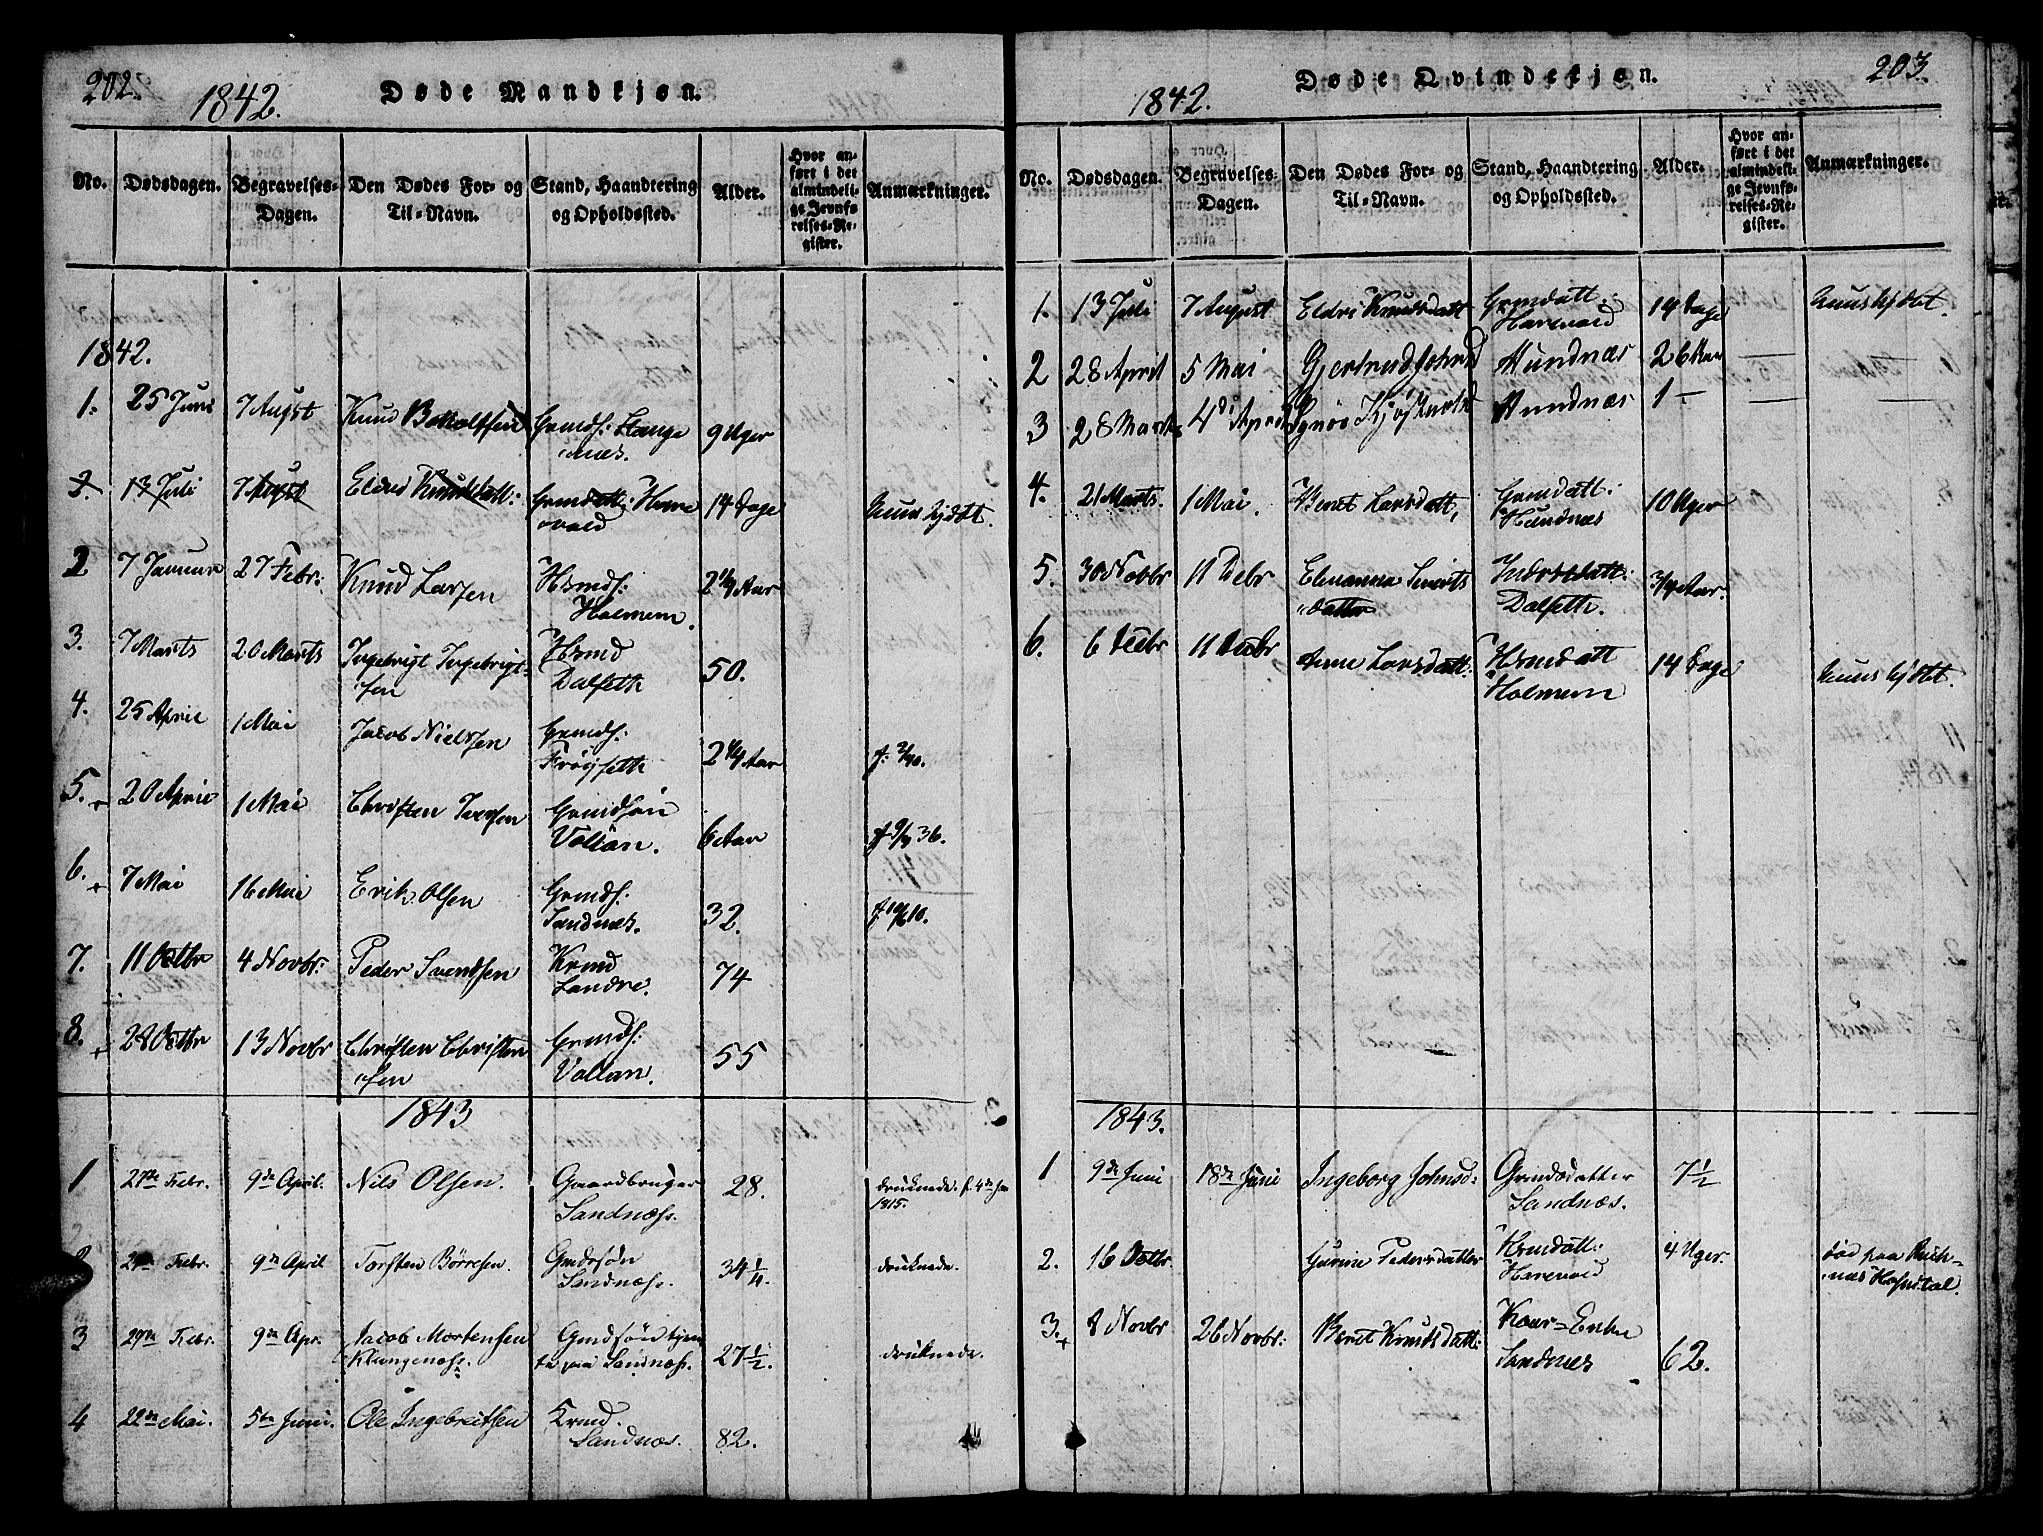 202.
1842.
Døde Mandkjøn.
No.
Dødsdagen.
Begravelses-
Dagen.
Den Dødes For- og
Til-Navn.
Stand, Haandtering
og Opholdssted.
Alder.
Hvor an-
ført i det
almindeli-
ge Jevnfø-
relses-Re-
gister.
Anmærkninger.
1842.
1. 25 Juni 7 August Knud Gmdf:
9 Uger
2. 13 Juli 7 August Eldri Knudsdatt: Gmdatt: Hare
vold 14 Dage
2 7 Januar 27 Febr: Knud Larsen Hsmdf:
Holmem. 2 1/4 Aar
3. 7 Marts 20 Marts Ingebrigt Ingebrigt-
sen Hsmd
Dalseth 50.
4. 25 April 1 Mai Jacob Nielssen Grmdf:
Frøyseth 2 1/4 Aar
5. + 20 April 1 Mai Christen Grmdsøn
Vollan. 6 Aar 36.
6. + 7 Mai 16 Mai Erik Olsen Grmdf:
Sandnæs. 32.
7. 11 Octbr 4 Novbr: Peder Svendsen Krmd
Landre. 74
8. + 28 Octbr 13 Novbr Christen Christen
sen Grmdf:
Vollan. 55
1843
1 27de Febr. 9de April. Nils Olsen. Gaardbruger
Sandnæss. 28. druknede.
1815.
2 Febr. 9de April Torsten Børresen. Gmdssøn
Sandnæss. 34 1/4. druknede.
3 Febr. 9de Apr. Jacob Mortensen
Klungenæss. Gmdsøn tjen
te paa Sandnæss. 27 1/2. druknede.
4 22de Mai. 5te Juni. Ole Ingebreitsen Krmd.
Sandnæs. 82.
203.
1842.
Døde Qvindekjøn.
No.
Dødsdagen.
Begravelses-
Dagen.
Den Dødes For- og
Til-Navn.
Stand, Haandtering
og Opholdssted.
Alder.
Hvor an-
ført i det
almindeli-
ge Jevnfø-
relses-Re-
gister.
Anmærkninger.
1. 13 Juli 7 August Eldri Knudsdatt Grmdatt:
Harevold 14 Dage
2 28 April 5 Mai Gjertrud Johnsd Hundnæs 26
3 28 Marts 4de April Hundnæs 1 —
4. 21 Marts. 1 Mai. Beret Larsdatt, Grmdatt:
Hundnæs 10 Uger
5. 30 Novbr 11 Debr Sivert
datter
Dalseth. 3/4 Aar.
6. 6 Decbr 11 Decbr Anne Larsdatt: Hsmdatt
Holmem 14 Dage
1843.
1 9de Juni 18de Juni Ingeborg Johnsd: Grmdsdatter
Sandnæs. 7 1/2
2. 16 Octbr. Gurine Pedersdatter Krmdatt:
Harevold 4 Uger. død paa Reck-
næs Hospital.
3. + 8 Novbr 26 Novbr: Beret Knudsdatt: Kaar-Enke
Sandnæs 62.